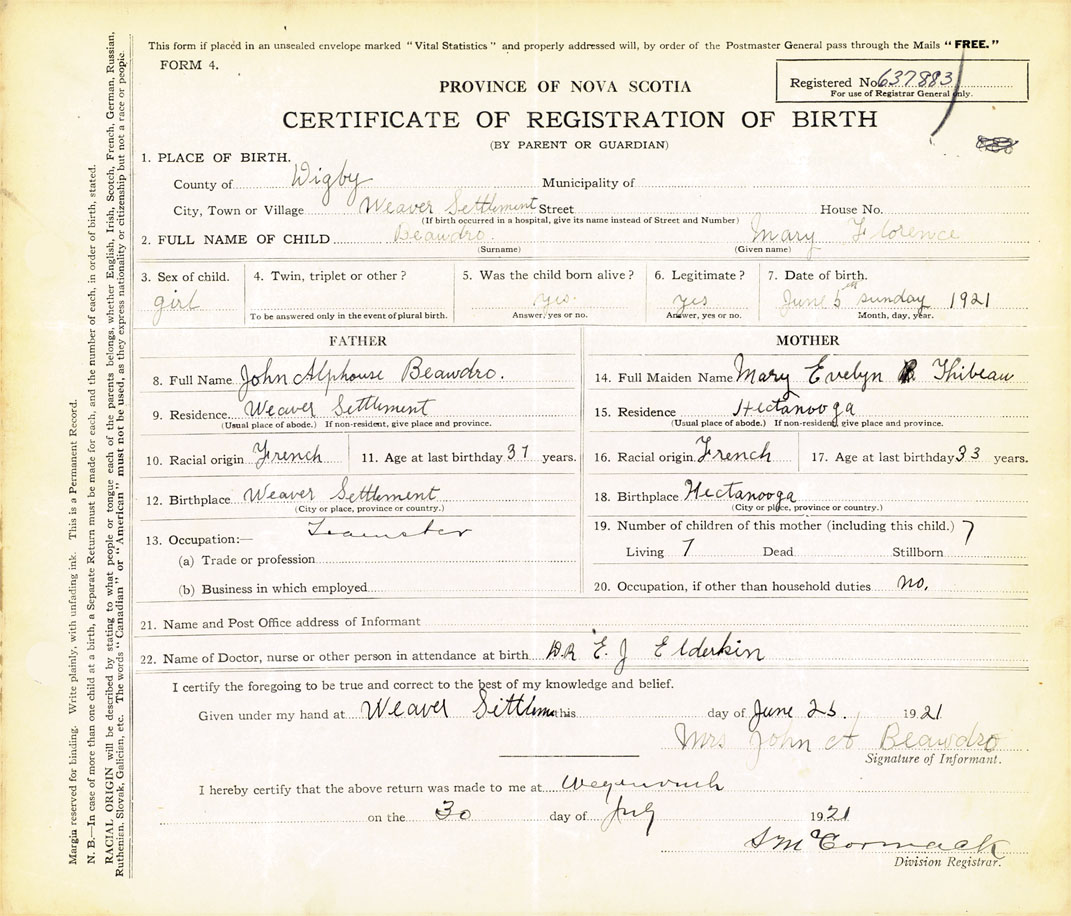 This form if placed in an unsealed envelope marked "Vital Statistics" and properly addressed will, by order of the Postmaster General pass through the Mails "FREE."
FORM 4.
Registered No. 637883
For use of Registrar General only.
PROVINCE OF NOVA SCOTIA
CERTIFICATE OF REGISTRATION OF BIRTH
(BY PARENT OR GUARDIAN)
1. PLACE OF BIRTH.
County of Digby Municipality of
City, Town or Village Weaver Settlement Street House No.
(If birth occurred in a hospital, give its name instead of Street and Number)
2. FULL NAME OF CHILD Beawdro. Mary Florence
(Surname) (Given name)
3. Sex of child. 4. Twin, triplet or other? 5. Was the child born alive? 6. Legitimate? 7. Date of birth.
girl yes. yes June 5th sunday 1921
To be answered only in the event of plural birth. Answer, yes or no. Answer, yes or no. Month, day, year.
FATHER
8. Full Name John Alphouse Beawdro.
9. Residence Weaver Settlement
(Usual place of abode.) If non-resident, give place and province.
10. Racial origin French 11. Age at last birthday 37 years.
12. Birthplace Weaver Settlement
(City or place, province or country.)
13. Occupation:— Teamster
(a) Trade or profession
(b) Business in which employed
MOTHER
14. Full Maiden Name Mary Evelyn Thibeau
15. Residence Hectanooga
(Usual place of abode.) If non-resident, give place and province.
16. Racial origin French 17. Age at last birthday 33 years.
18. Birthplace Hectanooga
(City or place, province or country.)
19. Number of children of this mother (including this child.) 7
Living 7 Dead Stillborn
20. Occupation, if other than household duties no.
21. Name and Post Office address of Informant
22. Name of Doctor, nurse or other person in attendance at birth DR E. J Elderkin
I certify the foregoing to be true and correct to the best of my knowledge and belief.
Given under my hand at Weaver Settlem this day of June 25. 1921
Mrs John A Beawdro
Signature of Informant.
I hereby certify that the above return was made to me at
on the 30 day of July 1921
McCormack
Division Registrar.
Margin reserved for binding. Write plainly, with unfading ink. This is a Permanent Record.
N. B.—In case of more than one child at a birth, a Separate Return must be made for each, and the number of each, in order of birth, stated.
RACIAL ORIGIN will be described by stating to what people or tongue each of the parents belongs, whether English, Irish, Scotch, French, German, Russian,
Ruthenian, Slovak, Galician, etc. The words "Canadian" or "American" must not be used, as they express nationality or citizenship but not a race or people.